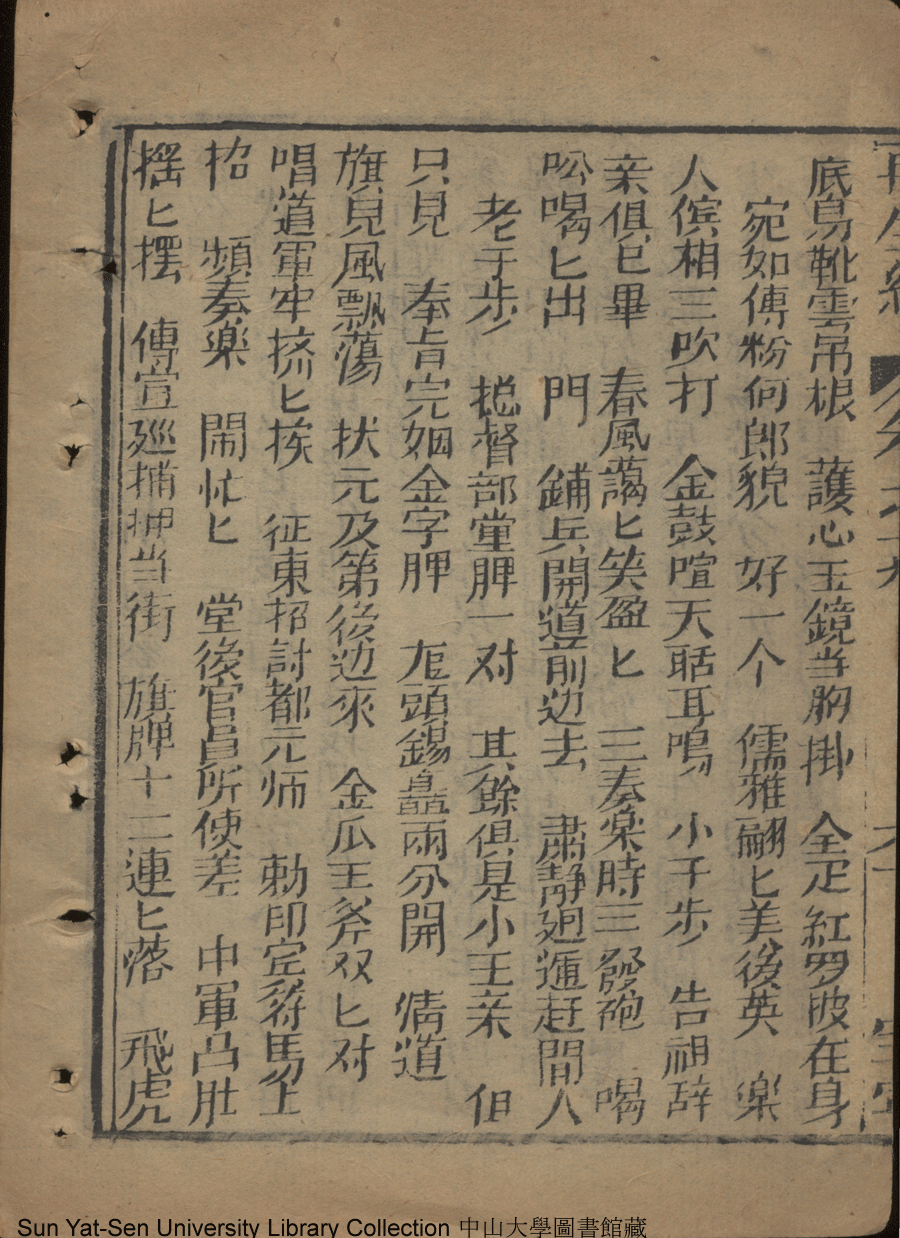 底烏靴雲吊根　護心玉鏡当胸掛　全疋紅罗披在身
宛如傳粉何郎貌　好一个　儒雅翩匕美後英　楽
人傧相三吹打　金鼓喧天聒耳鳴　小子步　告祖辞
亲俱已畢　春風藹匕笑盈匕　三奏楽時三發砲　喝
吆喝匕出　門　鋪兵開道前边去　肅静廻避赶間人
老于步　捴督部堂牌一对　其餘俱是小王亲　但
只見　奉旨完姻金字牌　尨頭錫矗兩分開　清道
旗兒風飄蕩　状元及第後边來　金瓜王斧双匕对
唱道軍牢挤匕挨　征東招討都元师　勅印定符馬上
抬　頻奏楽　閙忙匕　堂後官員所使差　中軍凸肚
摇匕摆　傳宣廵捕押当街　旗牌十二連匕落　飛虎
Sun Yat-Sen University Library Collection 中山大學圖書館藏